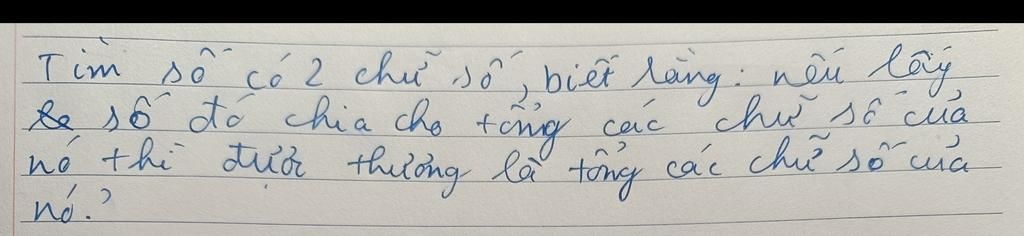 Tìm số có 2 chữ số, biết rằng: nếu lấy
số đó chia cho tổng các chữ số của
nó thì được thương là tổng các chữ số của
nó?